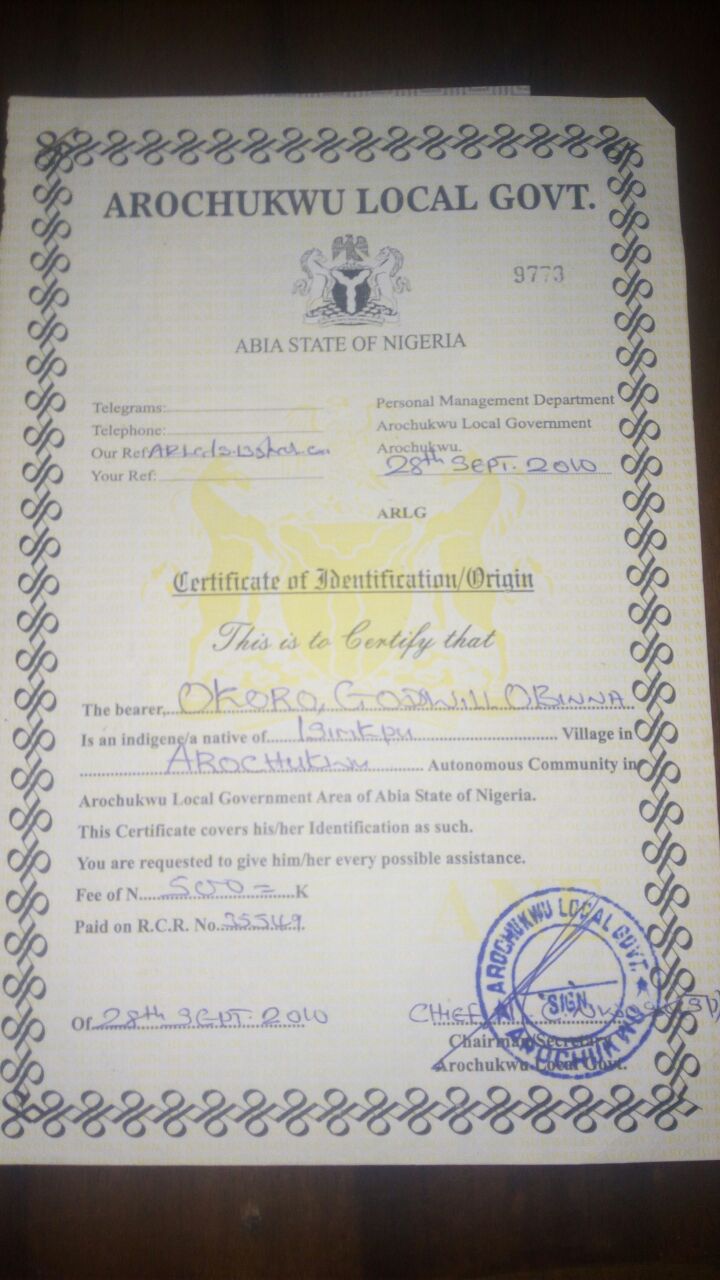 AROCHUKWU LOCAL GOVT.
9773
ABIA STATE OF NIGERIA
Telegrams:
Telephone:
Our Ref:
Your Ref:
Personal Management Department
Arochukwu Local Government
Arochukwu.
28th SEPT. 2010
ARLG
Certificate of Identification/Origin
This is to Certify that
The bearer, OKORO, GODWILL OBINNA
Is an indigene/a native of Isimkpu Village in
AROCHUKWU Autonomous Community in
Arochukwu Local Government Area of Abia State of Nigeria.
This Certificate covers his/her Identification as such.
You are requested to give him/her every possible assistance.
Fee of N 500= K
Paid on R.C.R. No. 35549.
Of 28th SEPT. 2010
CHIEF
Chairman/Secretary
Arochukwu Local Govt.
AROCHUKWU LOCAL GOVT.
SIGN.
AROCHUKWU